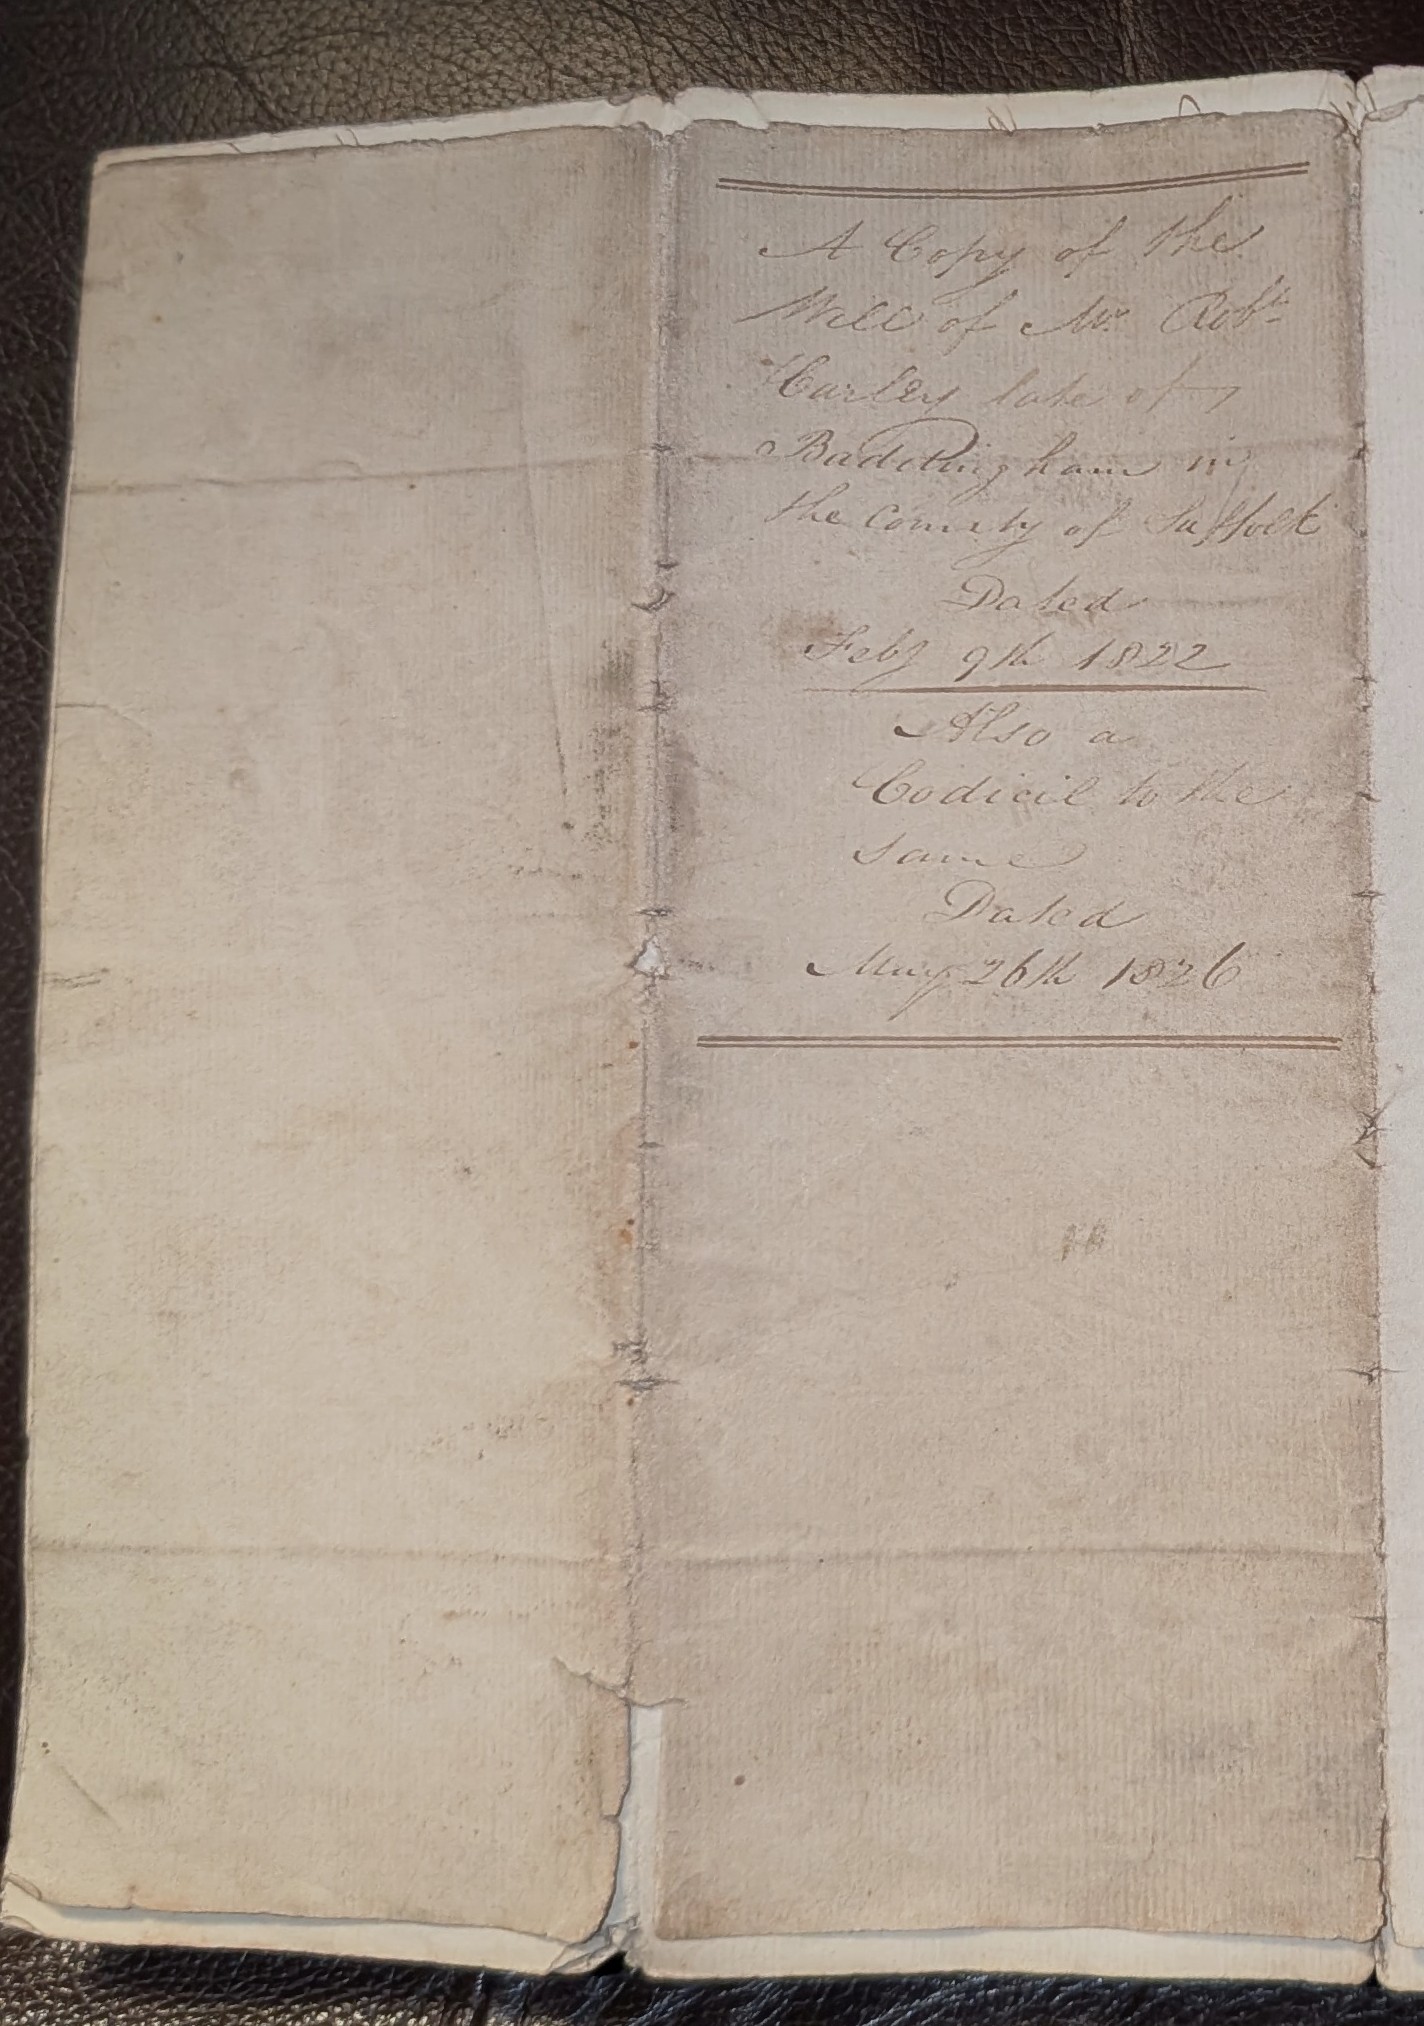 A Copy of the
Will of Mr. Robt.
Hurley late of
Baddingham in
the County of Suffolk
Dated
Feby 9th 1822
Also a
Codicil to the
same
Dated
May 26th 1826